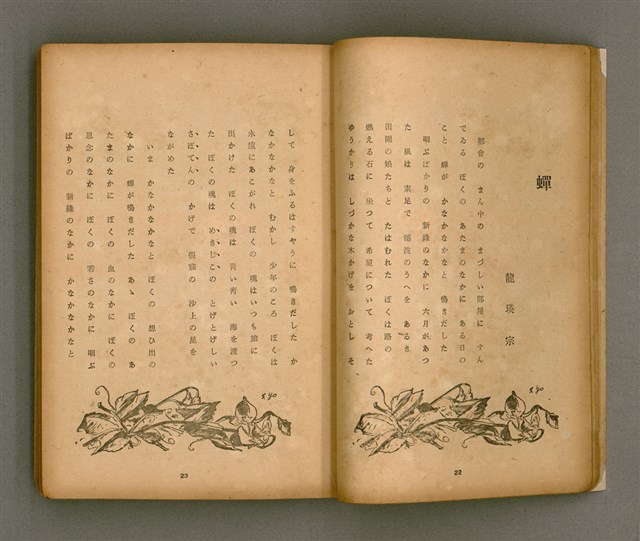 蟬
龍瑛宗
都會の まん中の まづしい部屋に すん
でゐる ぼくの あたまのなかに ある日の
こと 蟬が かなかなかなと 鳴きだした
明ぶばかりの 新綠のなかに 六月があつ
た 風は 素足で 穗波のうへを あるき
田園の娘たちと たはむれた ぼくは路の
燃える石に 坐つて 希望について 考へた
ゆうかりは しづかな木かげを おとし そ
22
して 身をふるはすやうに 鳴きだした か
なかなかなと むかし 少年のころ ぼくは
水流にあこがれ ぼくの 魂はいつも旅に
出かけた ぼくの魂は 青い青い 海を渡つ
た ぼくの魂は めきしこの とげとげしい
さぼてんの かげで 假寢の 沙上の星を
ながめた
いま かなかなかなと ぼくの 想ひ出の
なかに 蟬が鳴きだした あゝ ぼくの あ
たまのなかに ぼくの 血のなかに ぼくの
思念のなかに ぼくの 若さのなかに 明ぶ
ばかりの 新綠のなかに かなかなかなと
23